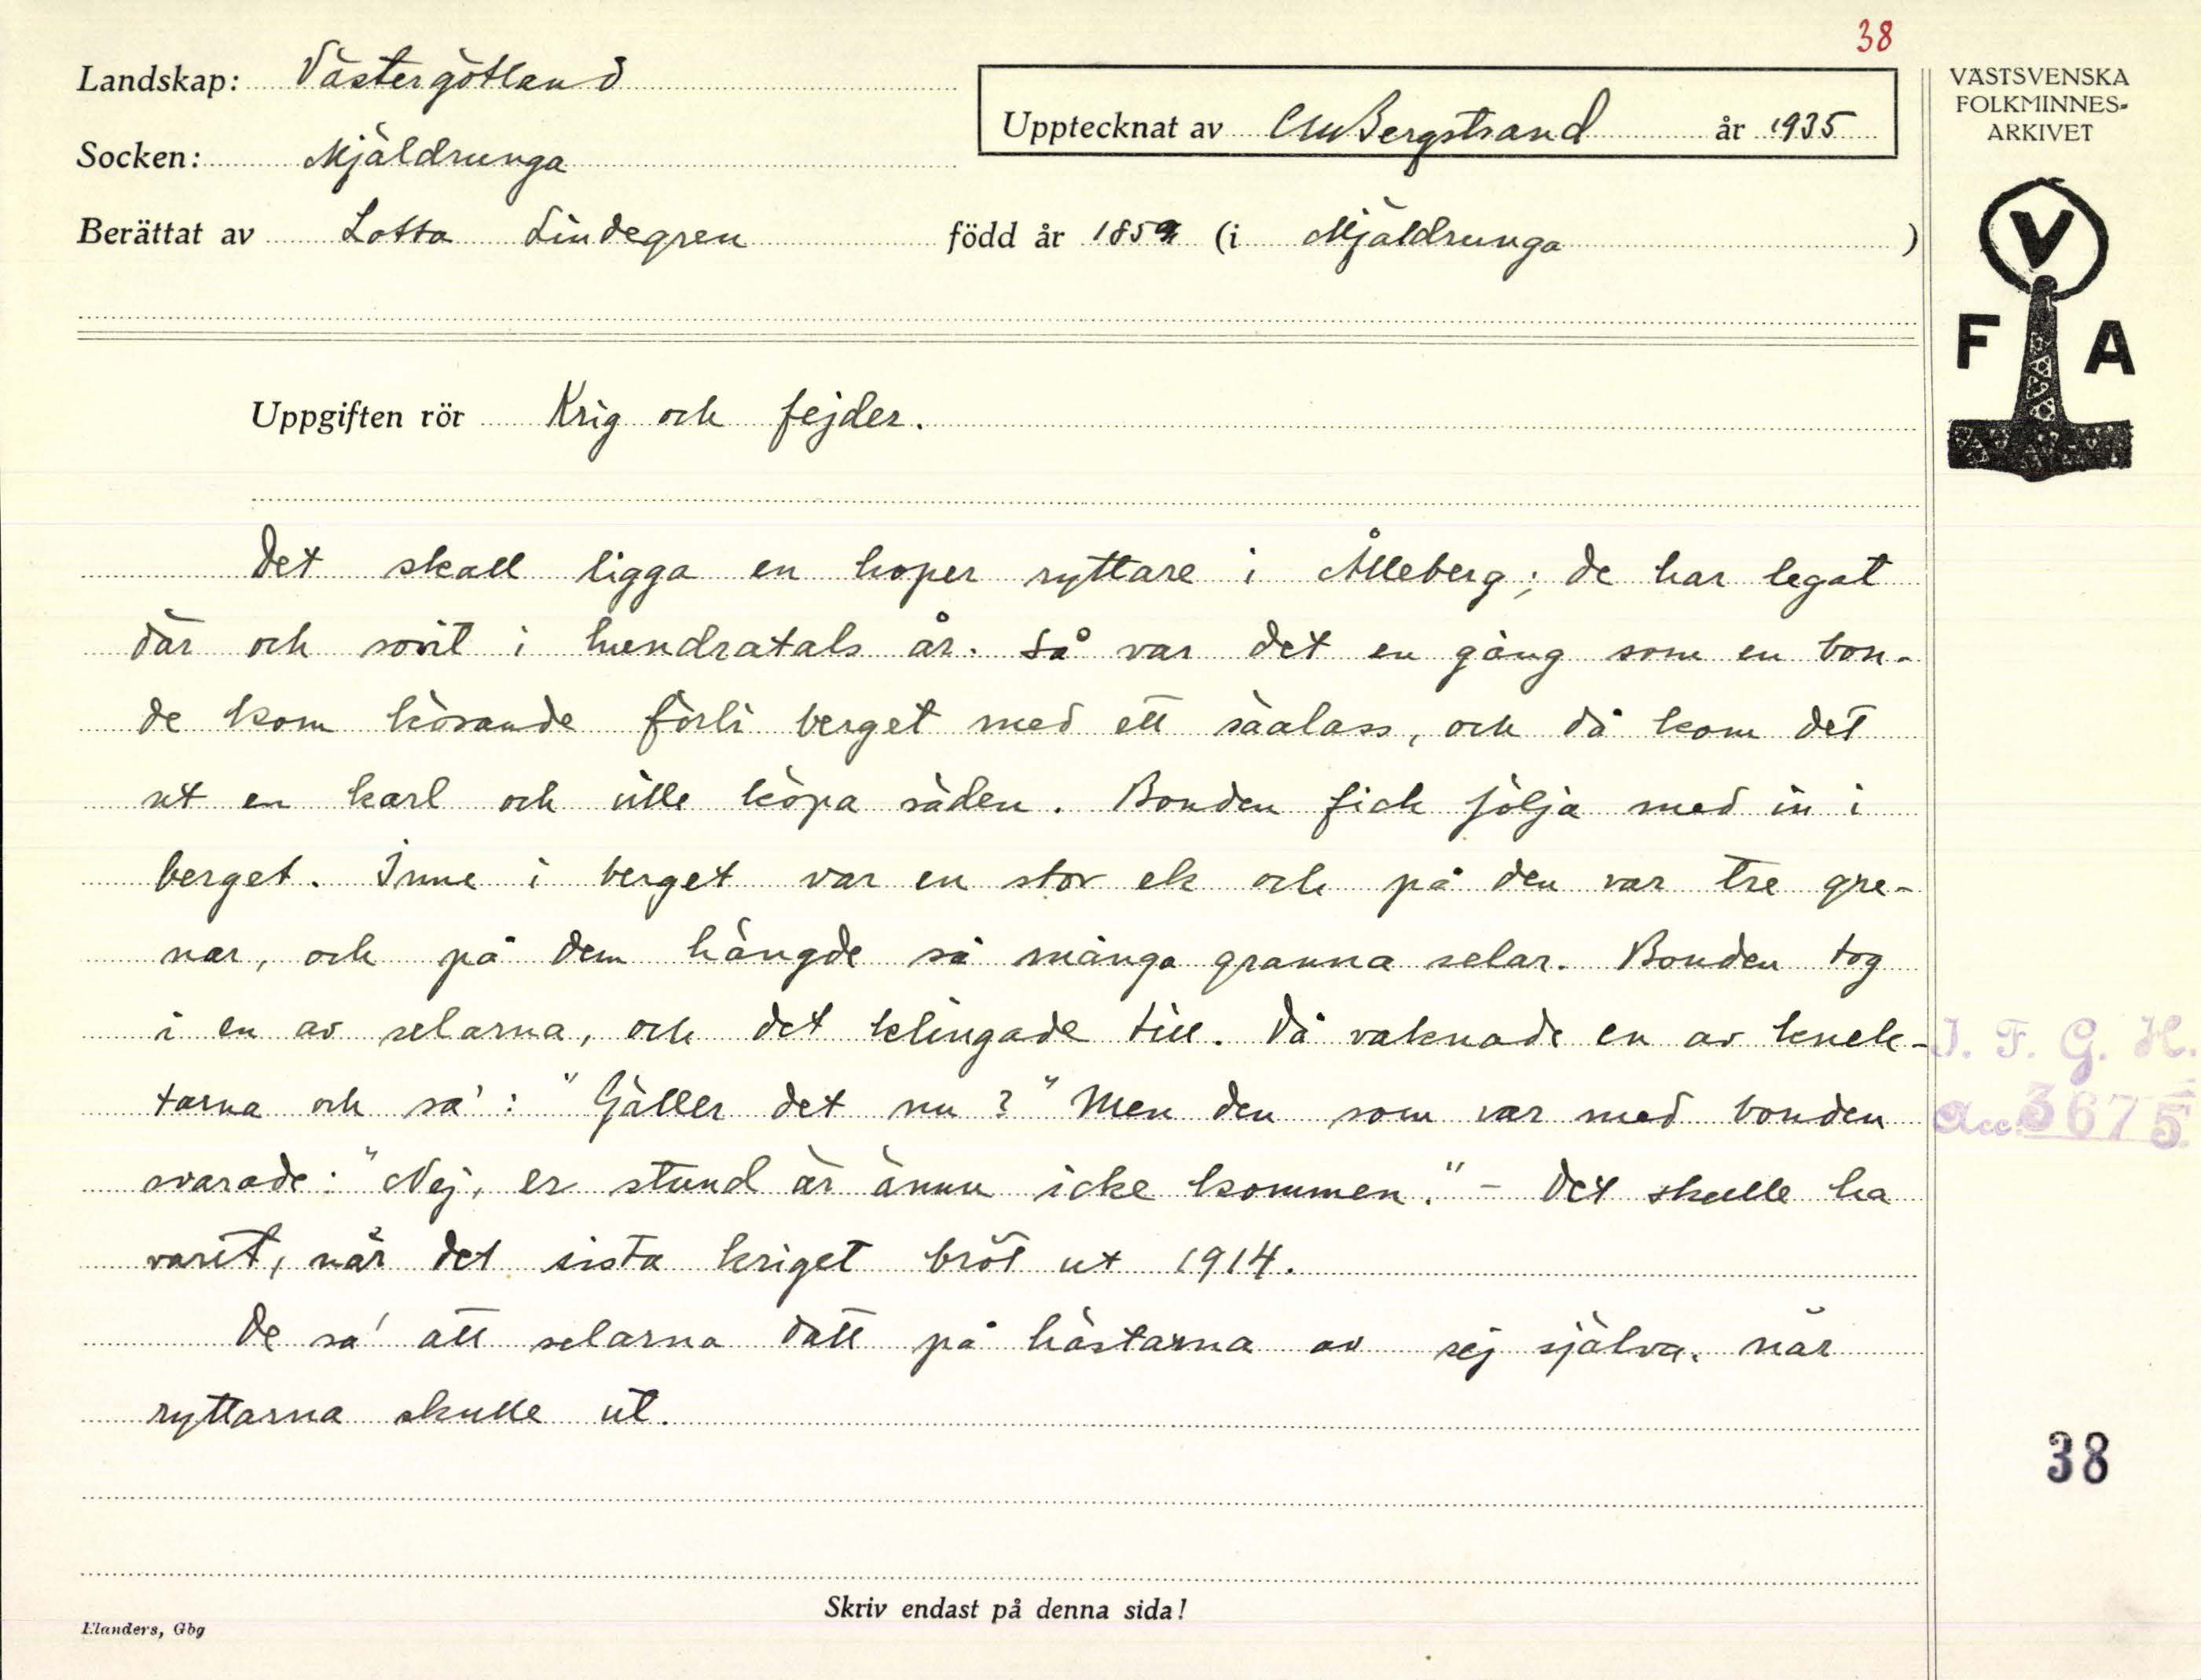 38
Landskap: Västergötland
Upptecknat av CMBergstrand år 1935
VÄSTSVENSKA
FOLKMINNES-
ARKIVET
Socken: Mjäldrunga
Berättat av Lotta Lindegren född år 1859 (i Mjäldrunga )
V
F A
Uppgiften rör Krig och fejder.
Det skall ligga en hoper ryttare i Ålleberg; de har legat
där och sovit i hundratals år. Så var det en gång som en bon-
de kom körande förli berget med ett säalass, och då kom det
ut en karl och ville köpa säden. Bonden fick följa med in i
berget. Inne i berget var en stor ek och på den var tre gre-
nar, och på dem hängde så många granna selar. Bonden tog
i en av selarna, och det klingade till. Då vaknade en av knek-
tarna och sa': "Gäller det nu?" Men den som var med bonden
svarade: "Nej, er stund är ännu icke kommen." - Det skulle ha
varit, när det sista kriget bröt ut 1914.
De sa' att selarna datt på hästarna av sej själva, när
ryttarna skulle ut.
I. F. G. H.
Acc. 3675
38
Skriv endast på denna sida!
Elanders, Gbg